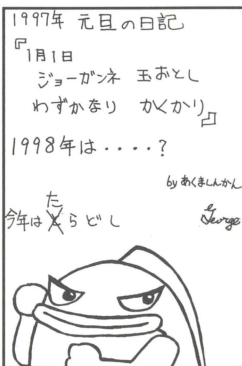 1997年 元旦の日記
『1月1日
ジョーガンネ 玉おとし
わずかなり かくかり』
1998年は・・・・?
by あくましんかん
& George
た
今年はとらどし